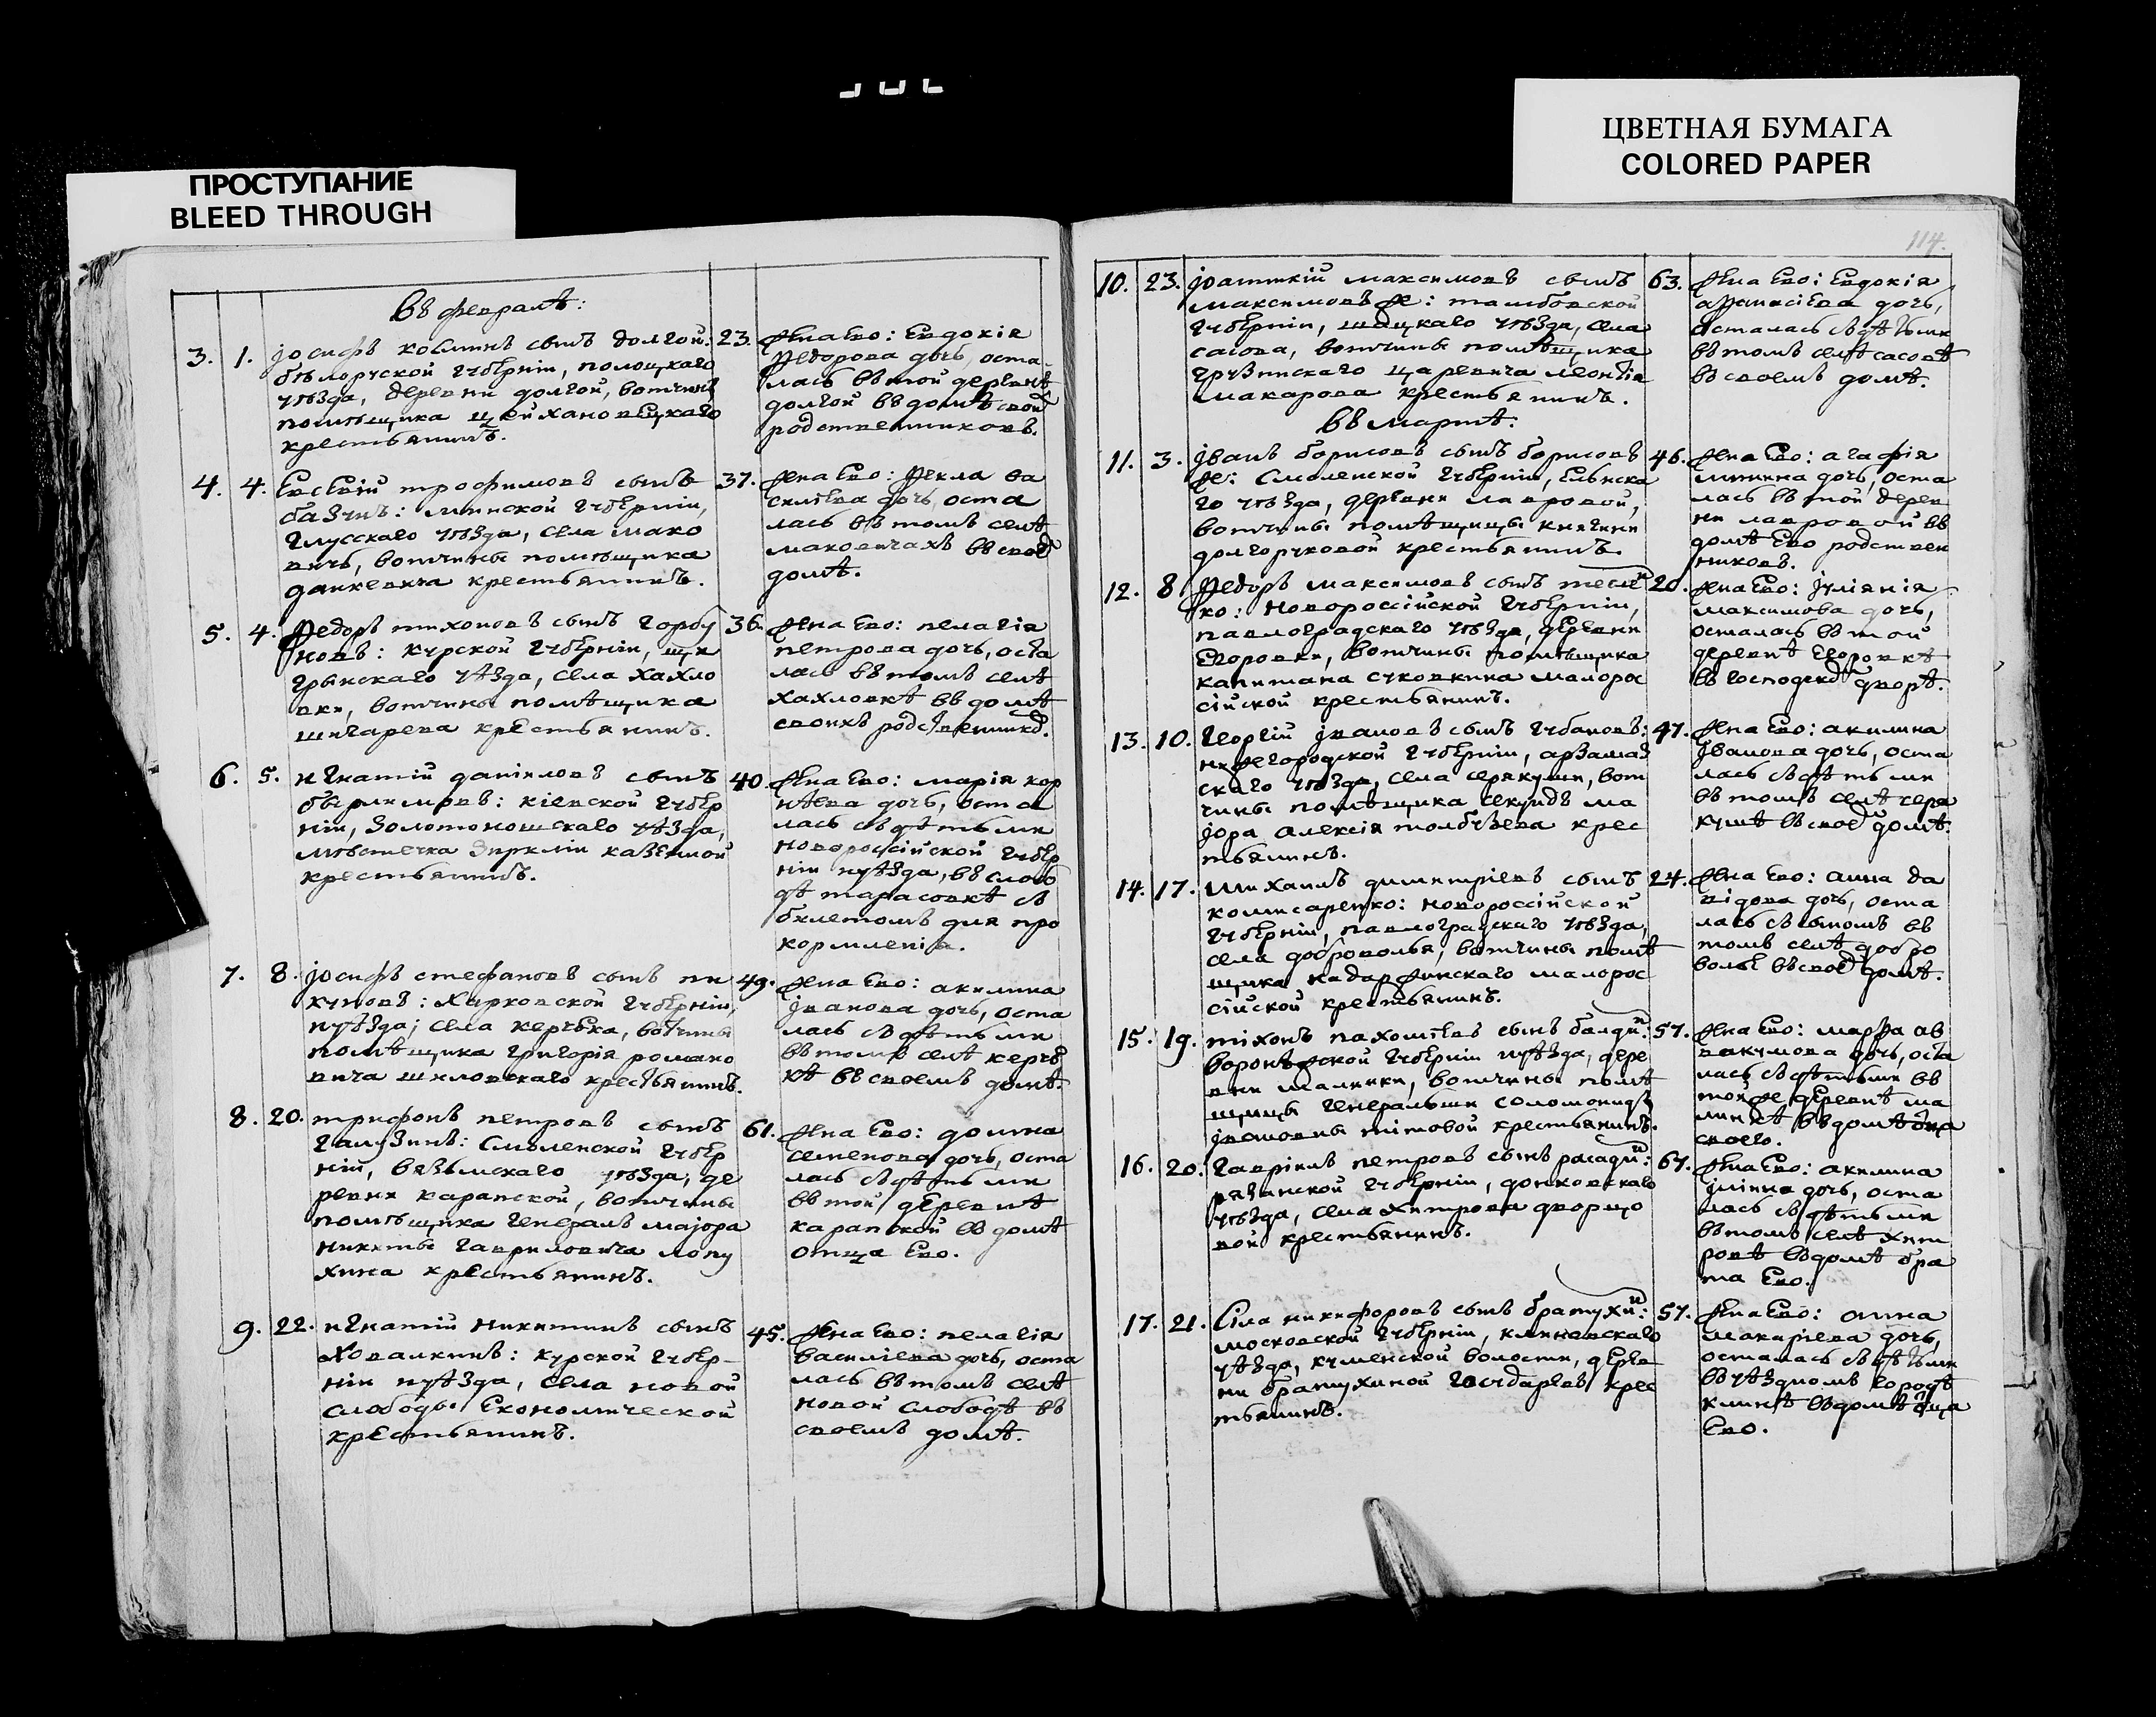 ЦВЕТНАЯ БУМАГА
COLORED PAPER
ПРОСТУПАНИЕ
BLEED THROUGH
Въ февралѣ:
3. 1. Іосифъ космин сынъ долгой:
бѣлоруской губерніи, полоцкаго
уѣзда, деревни долгой, вотчины
помѣщика цѣйхановецкаго
крестьянинъ.
23. Жена Ево: Евдокія
Федорова дочь, оста-
лась въ той деревнѣ
долгой въ домѣ своі
родственниковъ.
4. 4. Евсевій трофимовъ сынъ
базчнъ: минской губерніи,
глусскаго уѣзда, села мако
вичъ, вотчины помѣщика
данкевича крестьянинъ.
37. Жена Ево: Фекла ва
силіева дочь, оста
лась въ томъ селѣ
маковичахъ въ своє
домѣ.
5. 4. Федоръ тихоновъ сынъ горбу
новъ: курской губерніи, щи
грынскаго уѣзда, села хахло
вки, вотчины помѣщика
шигарева крестьянинъ.
36. Жена Ево: пелагіа
петрова дочь, оста
лась въ томъ селѣ
хахловкѣ въ домѣ
своихъ родственнико.
6. 5. игнатій даніиловъ сынъ
кіевской губер
ніи, золотоношскаго уѣзда,
мѣстечка ирклія казенной
крестьянинъ.
40. Жена Ево: марія кор
нѣева дочь, оста
лась съ дѣтьми
новороссійской губер
ніи и уѣзда, въ слобо
дѣ тарасовкѣ съ
билетомъ для про
кормленія.
7. 8. Іосифъ стефановъ сынъ пи
куновъ: харковской губерніи,
и уѣзда, села керчека, вотчины
помѣщика григорія романо
вича шиловскаго крестьянинъ.
49. Жена Ево: акилина
іванова дочь, оста
лась съ дѣтьми
въ томъ селѣ керче
кѣ въ своемъ домѣ.
8. 20. трифонъ петровъ сынъ
галузинъ: Смоленской губер
ніи, вязьмскаго уѣзда, де
ревни карапской, вотчины
помѣщика генералъ маіора
никиты гавриловича лопу
хина крестьянинъ.
61. Жена Ево: домна
семенова дочь, оста
лась съ дѣтьми
въ той деревнѣ
карапской въ домѣ
отца Ево.
9. 22. игнатій никитинъ сынъ
Ховалкинъ: курской губер-
ніи и уѣзда, села новой
слободы Економической
крестьянинъ.
45. Жена Ево: пелагія
василіева дочь, оста
лась въ томъ селѣ
новой слободѣ въ
своемъ домѣ.
114.
10. 23. Іоанникій максимовъ сынъ
максимовъ же: тамбовской
губерніи, шацкаго уѣзда, села
сасова, вотчины помѣщика
грузинскаго царевича леонтія
макарова крестьянинъ.
63. Жена Ево: Евдокія
афанасіева дочь,
осталась съ дѣтьми
въ томъ селѣ сасовѣ
въ своемъ домѣ.
Въ мартѣ:
11. 3. Іванъ борисовъ сынъ борисовъ
же: Смоленской губерніи, Ельнска
го уѣзда, деревни лавровой,
вотчины помѣщицы княгини
долгоруковой крестьянинъ.
46. Жена Ево: агафія
минина дочь, оста
лась въ той дерев
ни лавровой въ
домѣ Ево родствен
никовъ.
12. 8 Федоръ максимовъ сынъ
ко: новороссійской губерніи,
павлоградскаго уѣзда, деревни
Егоровки, вотчины помѣщика
капитана суковкина малорос
сійской крестьянинъ.
20. Жена Ево: іуліанія
максимова дочь,
осталась въ той
деревнѣ Егоровкѣ
въ господско дворѣ.
13. 10. Георгій івановъ сынъ губановъ:
нижегородской губерніи, арзамаз
скаго уѣзда, села серякуши, вот
чины помѣщика секундъ ма
іора алексія толбузева крес
тьянинъ.
47. Жена Ево: акилина
Іванова дочь, оста
лась съ дѣтьми
въ томъ селѣ серя
кушѣ въ своем домѣ.
14. 17. михаилъ димитріевъ сынъ
комисаренко: новороссійской
губерніи, павлоградскаго уѣзда,
села доброволья, вотчины помѣ
щика малорос
сійской крестьянинъ.
24. Жена Ево: анна да
відова дочь, оста
лась съ сыномъ въ
томъ селѣ добро
вольѣ въ своем домѣ.
15. 19. тіхонъ пахоміевъ сынъ балдин:
воронѣжской губерніи и уѣзда, дере
вни малинки, вотчины помѣ
щицы генеральши соломониды
івановны тітовой крестьянинъ.
57. Жена Ево: марѳа ав
вакумова дочь, оста
лась съ дѣтьми въ
той же деревнѣ ма
линкѣ въ домѣ отца
своего.
16. 20. гавріилъ петровъ сынъ расадин:
рязанской губерніи, донковскаго
уѣзда, села хитрова дворцо
вой крестьянинъ.
67. Жена Ево: акилина
іліина дочь, оста
лась съ дѣтьми
въ томъ селѣ хит
ровѣ въ домѣ бра
та Ево.
17. 21. Сіла никифоровъ сынъ братухин:
московской губерніи, клиневскаго
уѣзда, куменской волости, дерев
ни братухиной государевъ крес
тьянинъ.
57. Жена Ево: анна
макиріева дочь,
осталась съ дѣтьми
въ уѣздномъ городѣ
клинѣ въ домѣ отца
Ево.